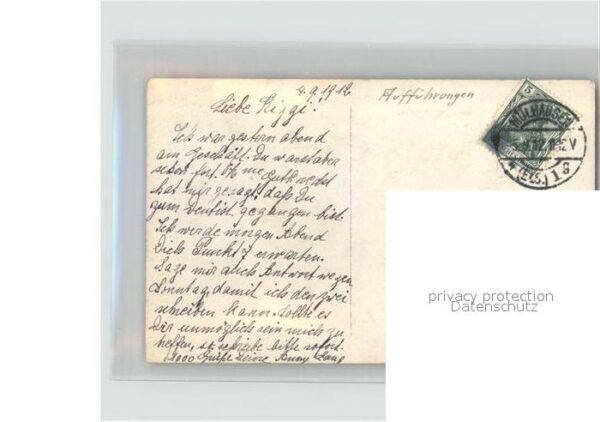 4.9.1912
Liebe Rizzi!
Aufführungen
Ich war gestern abend
am Geschäft. Du warst aber
schon fort.
hat mir gesagt, daß Du
zum Dentist gegangen bist.
Ich werde morgen Abend
Dich Punkt 7 erwarten.
Sage mir auch Antwort wegen
Sonntag, damit ich den zwei
schreiben kann. Sollte es
Dir unmöglich sein mich zu
treffen, so schreibe bitte sofort.
1000 Grüße Deine Anny Lang
5
MÜLHAUSEN
9.12.11-12V
(ELS.) 1 G
privacy protection
Datenschutz